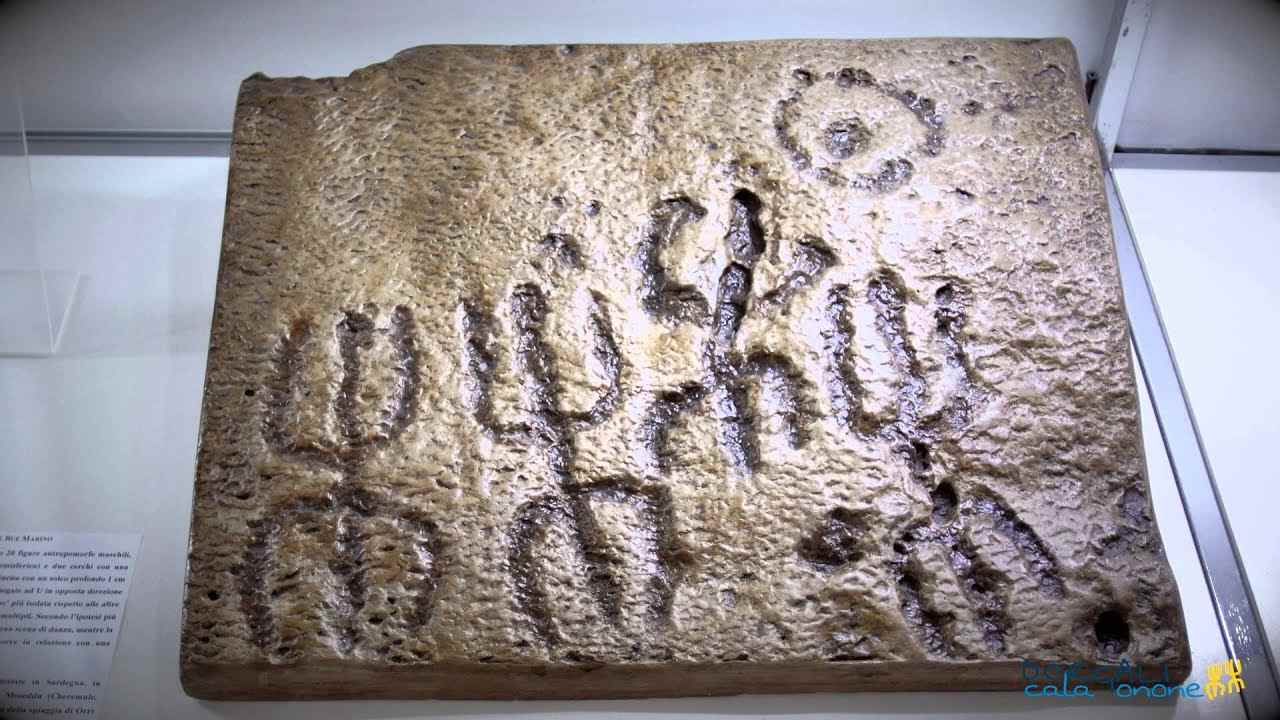 BUE MARINO
20 figure antropomorfe maschili,
e due cerchi con una
con un solco profondo 1 cm
ad U in opposta direzione
più isolata rispetto alle altre
multipli. Secondo l'ipotesi più
una scena di danza, mentre la
in relazione con una
in Sardegna, in
Moseddu (Cheremule,
della spiaggia di Orrì
DORGALI
cala gonone